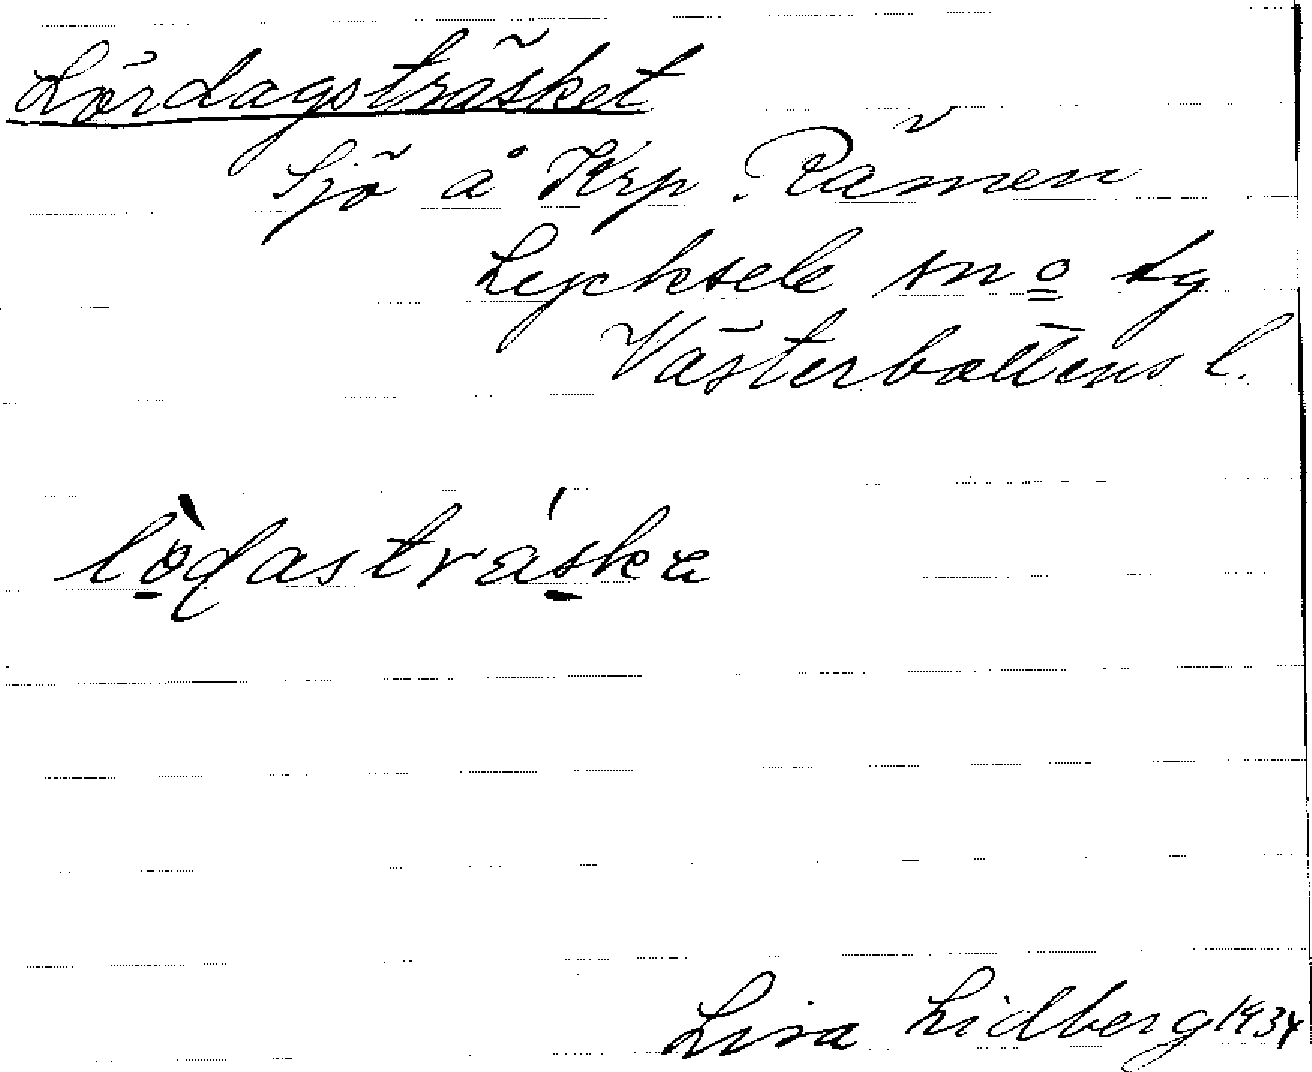 Lördagsträsket
Sjö å Krp. Råmen
Lycksele sn o lg
Västerbottens l.
lö̀dastrá̱ska
Lisa Lidberg 1934